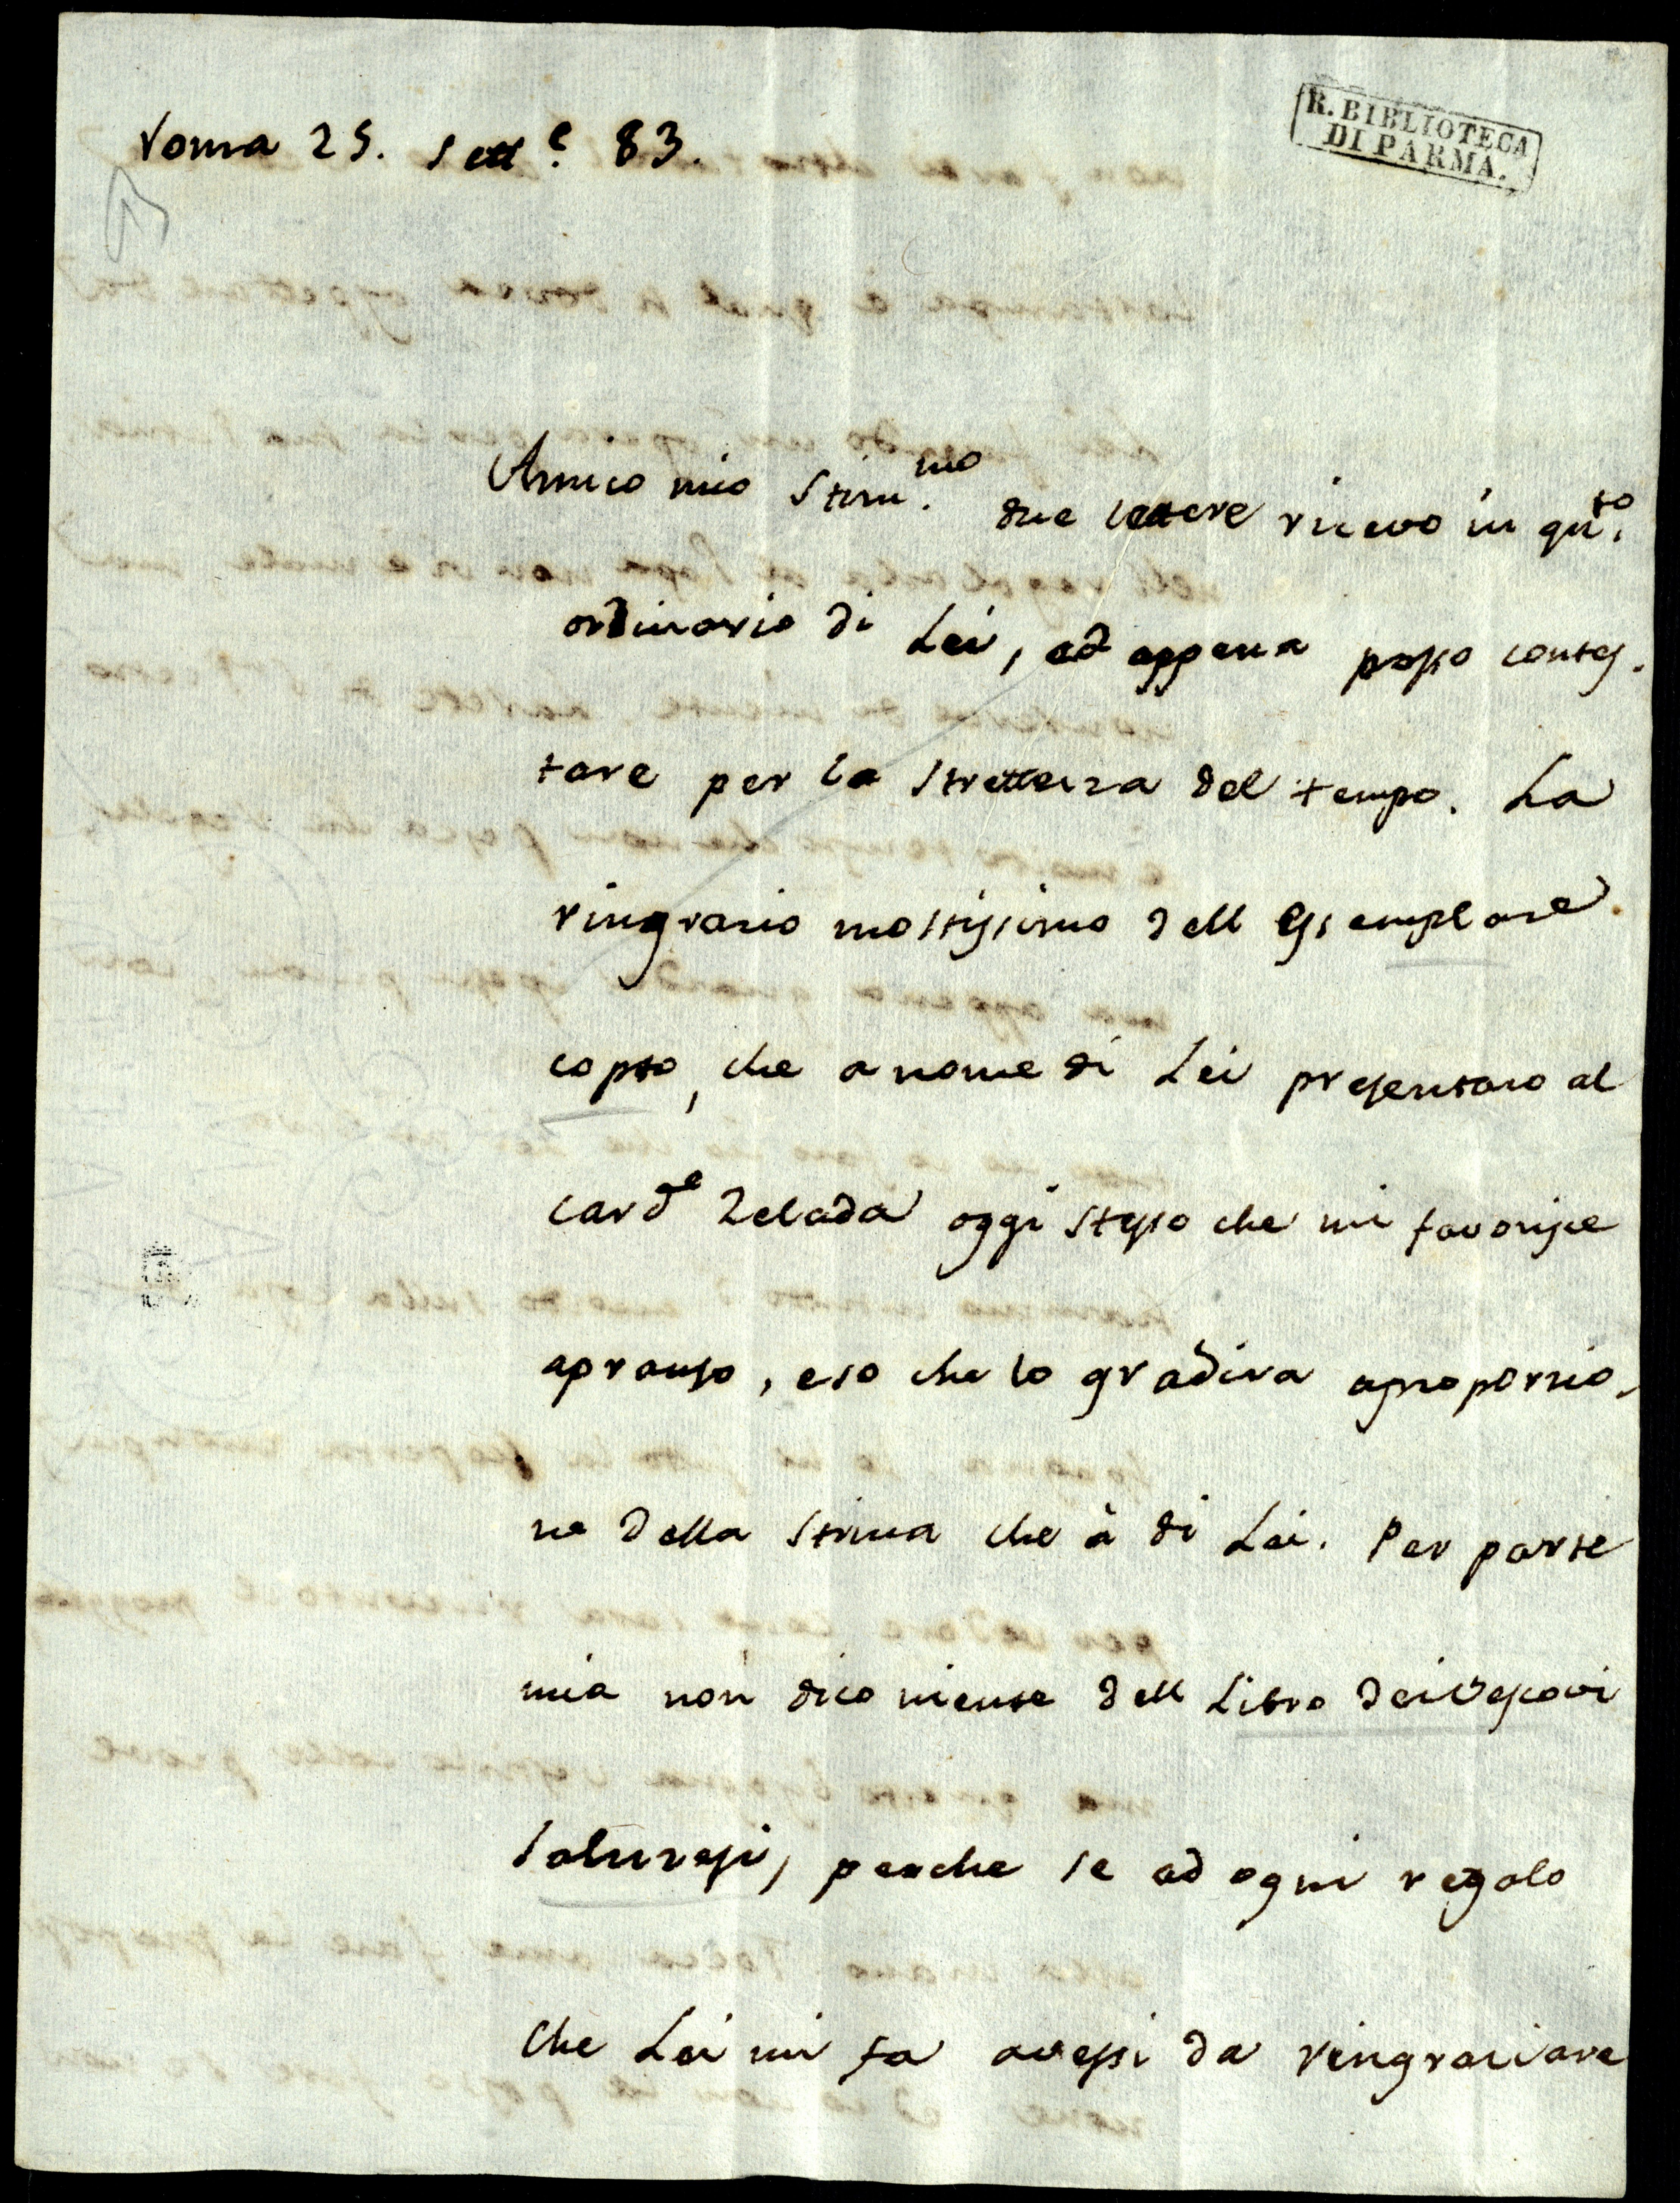 Roma 25. Sett.e 83.
R. BIBLIOTECA
DI PARMA.
Amico mio Stim.mo due lettere ricevo in qn.to
ordinario di Lei, ed appena posso contes-
tare per la strettezza del tempo. La
ringrazio moltissimo dell Essemplare
copto, che a nome di Lei presentaro al
Card.le Zelada oggi stesso che mi favorisce
apranso, e so che lo gradira aproporzio-
ne della stima che à di Lei. Per parte
mia non dico niente dell Libro dei Vescovi
Saluzesi, perche se ad ogni regalo
che Lei mi fa avessi da ringraziare